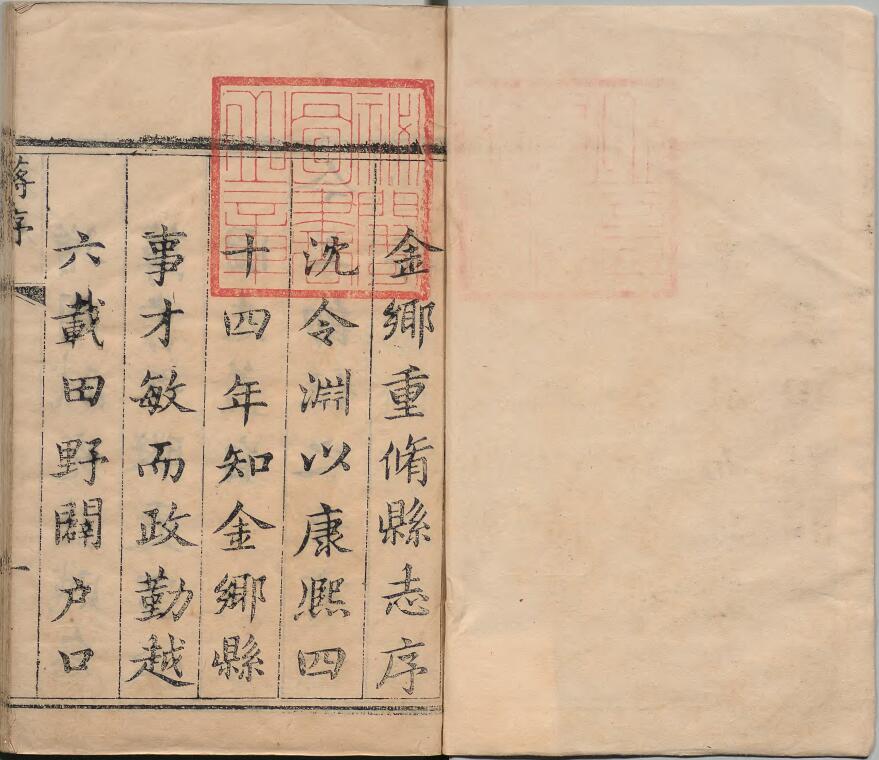 金鄉重脩縣志序
沈令淵以康熙四
十四年知金鄉縣
事才敏而政勤越
六載田野闢户口
蔣序
一